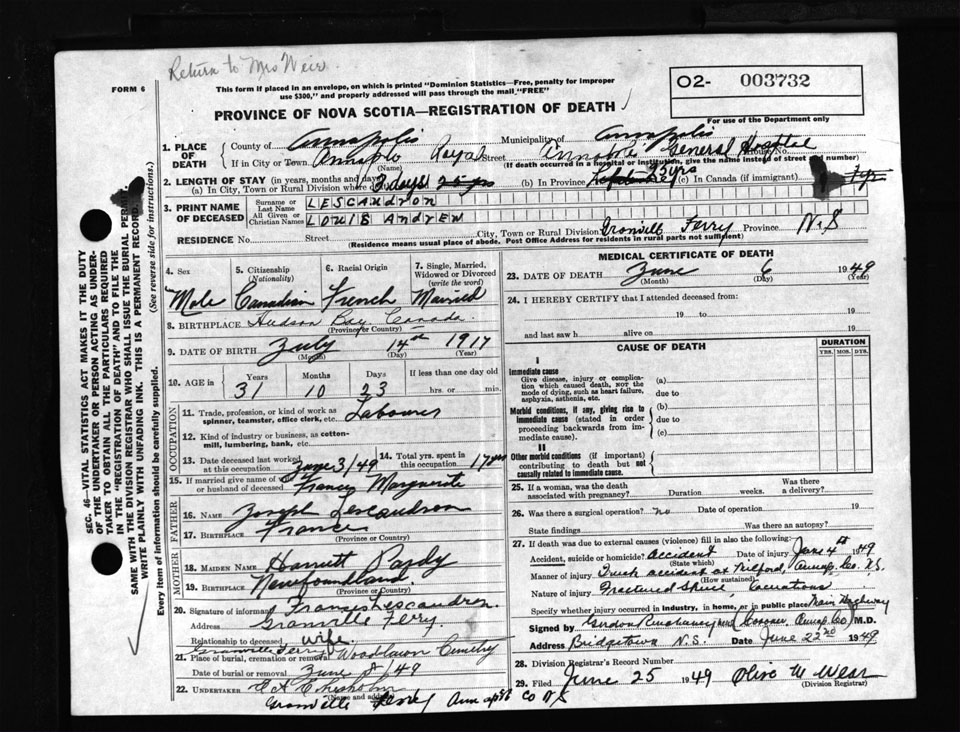 Return to Mrs Weir
FORM 6
This form if placed in an envelope, on which is printed "Dominion Statistics—Free, penalty for improper
use $300," and properly addressed will pass through the mail "FREE"
O2- 003732
For use of the Department only
PROVINCE OF NOVA SCOTIA—REGISTRATION OF DEATH
SEC. 46—VITAL STATISTICS ACT MAKES IT THE DUTY
OF THE UNDERTAKER OR PERSON ACTING AS UNDER-
TAKER TO OBTAIN ALL THE PARTICULARS REQUIRED
IN THE "REGISTRATION OF DEATH" AND TO FILE THE
SAME WITH THE DIVISION REGISTRAR WHO SHALL ISSUE THE BURIAL PER
WRITE PLAINLY WITH UNFADING INK. THIS IS A PERMANENT RECORD.
Every item of information should be carefully supplied. (See reverse side for instructions.)
1. PLACE OF DEATH County of Annapolis Municipality of Annapolis
If in City or Town Royal Street General Hospital No.
(Name) (If death occurred in a hospital or institution, give the name instead of street and number)
2. LENGTH OF STAY (in years, months and days)
(a) In City, Town or Rural Division where 2 days 25 yrs (b) In Province 25 yrs (c) In Canada (if immigrant)
3. PRINT NAME OF DECEASED Surname or Last Name LESCAUDRON
All Given or Christian Names LOUIS ANDREW
RESIDENCE No. Street City, Town or Rural Division Granville Ferry Province N.S
(Residence means usual place of abode. Post Office Address for residents in rural parts not sufficient)
4. Sex 5. Citizenship (Nationality) 6. Racial Origin 7. Single, Married, Widowed or Divorced (write the word)
Male Canadian French Married
8. BIRTHPLACE Hudson Bay Canada
(Province or Country)
9. DATE OF BIRTH July 14th 1917
(Month) (Day) (Year)
10. AGE in Years Months Days If less than one day old
31 10 23 hrs. or min.
OCCUPATION
11. Trade, profession, or kind of work as spinner, teamster, office clerk, etc. Labourer
12. Kind of industry or business, as cotton-mill, lumbering, bank, etc.
13. Date deceased last worked at this occupation June 3/49 14. Total yrs. spent in this occupation 17 years
15. If married give name of wife or husband of deceased Frances Marguerite
FATHER
16. NAME Joseph Lescaudron
17. BIRTHPLACE France
(Province or Country)
MOTHER
18. MAIDEN NAME Harriett Pardy
19. BIRTHPLACE Newfoundland.
(Province or Country)
20. Signature of informant Frances Lescaudron.
Address Granville Ferry.
Relationship to deceased wife.
Granville Ferry
21. Place of burial, cremation or removal Woodlawn Cemetry
Date of burial or removal June 8/49
22. UNDERTAKER Chisholm
(Name and address)
Granville Ferry Co N S
MEDICAL CERTIFICATE OF DEATH
23. DATE OF DEATH June 6 1949
(Month) (Day) (Year)
24. I HEREBY CERTIFY that I attended deceased from:
19 to 19
and last saw h alive on 19
CAUSE OF DEATH DURATION
YRS. MOS. DYS.
I
Immediate cause
Give disease, injury or complication which caused death, NOT the mode of dying, such as heart failure, asphyxia, asthenia, etc. (a)
due to
Morbid conditions, if any, giving rise to immediate cause (stated in order proceeding backwards from immediate cause). (b)
due to
(c)
II
Other morbid conditions (if important) contributing to death but not causally related to immediate cause.
25. If a woman, was the death associated with pregnancy? Duration weeks. Was there a delivery?
26. Was there a surgical operation? no Date of operation 19
State findings Was there an autopsy?
27. If death was due to external causes (violence) fill in also the following:
Accident, suicide or homicide? Accident Date of injury June 4th 1949
(State which)
Manner of injury Truck accident at Milford, Annap. Co. N.S.
(How sustained)
Nature of injury Fractured Spine,
Specify whether injury occurred in industry, in home, or in public place Main Highway
Signed by Coroner Annap Co
Address Bridgetown N.S. Date June 22nd 1949
28. Division Registrar's Record Number
29. Filed June 25 1949 Olive M Weir
(Division Registrar)